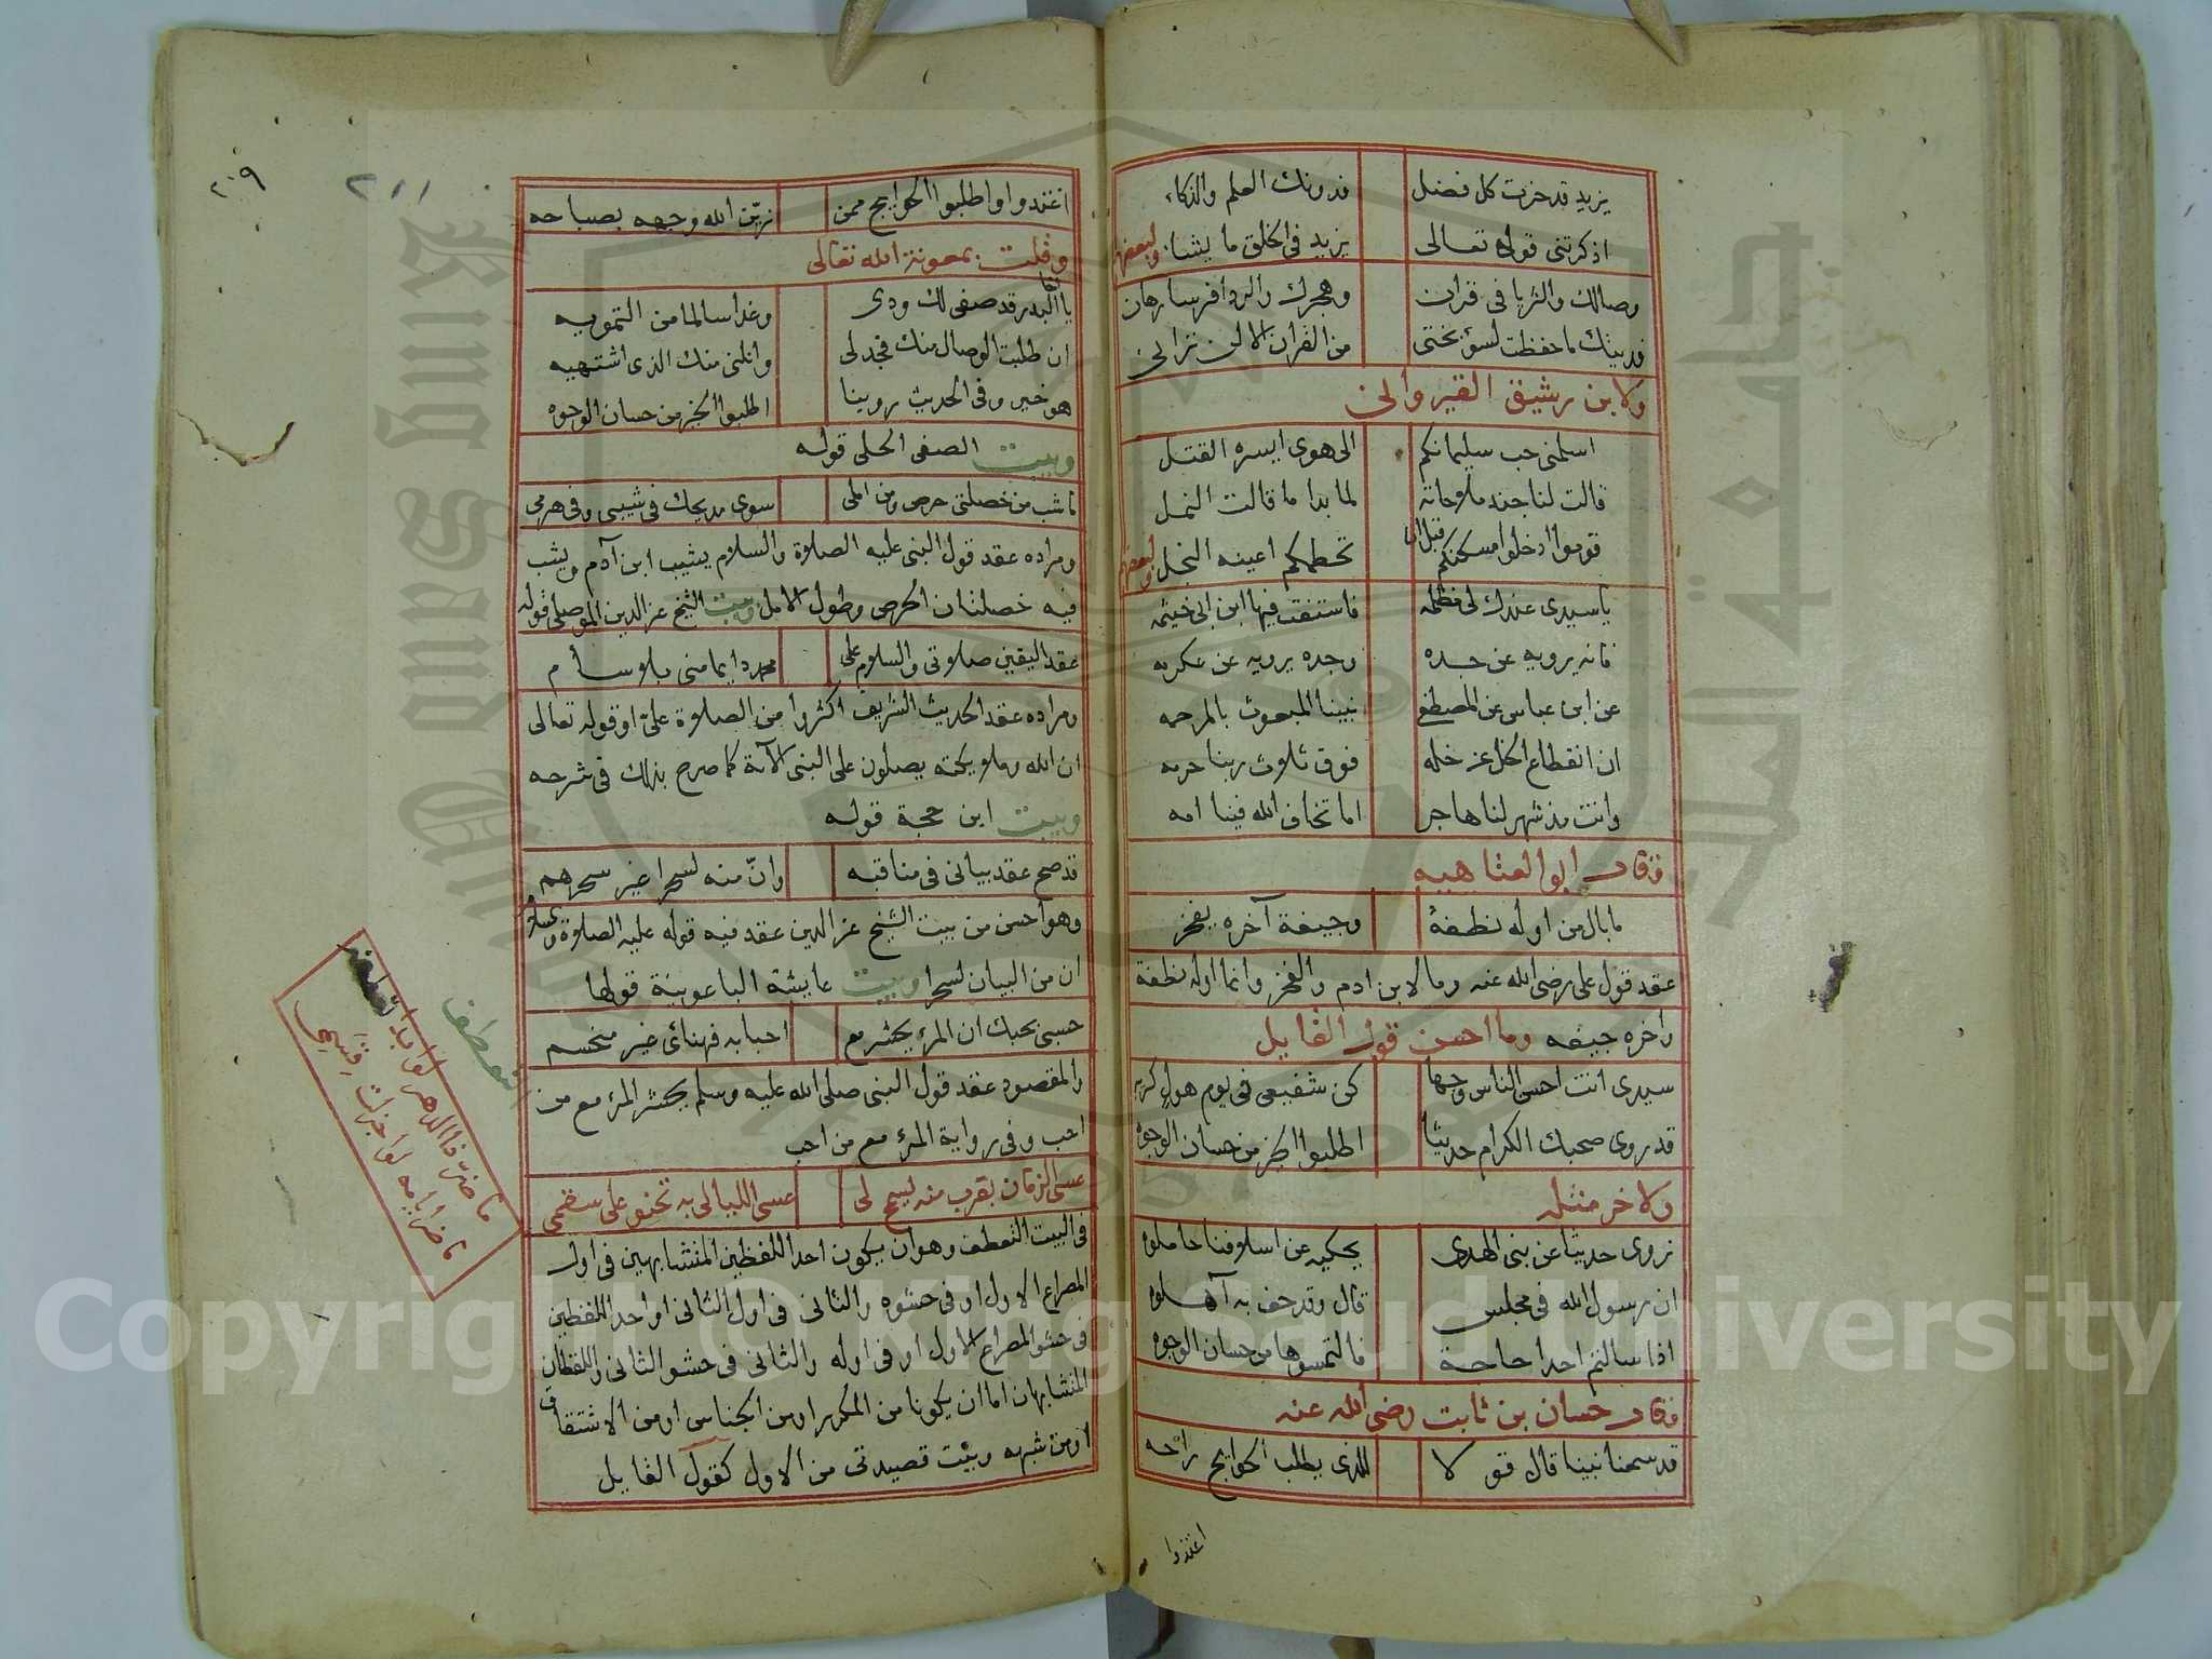 يزيد قد حزت كل فضل فدونك العلم والذكاء
اذكرتني قوله تعالى يزيد في الخلق ما يشا ولبعضهم
وصالك والثريا في قران وهجرك والردا فرسا رهان
فديتك ما حفظت لسؤ بختى من القران الا لن ترانى
ولابن رشيق القيروانى
اسلمنى حب سليمانكم الى هوى ايسره القتل
قالت لنا جند ملاحاته لما بدا ما قالت النمل
قوموا ادخلوا مسكنكم قبل ان تحطمكم اعينه النجل ولبعضهم
يا سيدى عندك لى مظلمه فاستفت فيها ابن ابى خيثمه
فانه يرويه عن جده وجده يرويه عن عكرمه
عن ابن عباس عن المصطفى نبينا المبعوث بالمرحمه
ان انقطاع الخل عن خله فوق ثلاث ربنا حرمه
وانت مذ شهر لنا هاجر اما تخاف الله فينا امه
وقال ابو العتاهيه
ما بال من اوله نطفة وجيفة آخره يفخر
عقد قول على رضى الله عنه وما لابن ادم والفخر وانما اوله نطفة
واخره جيفه وما احسن قول القايل
سيدى انت احسن الناس وجها كن شفيعى فى يوم هول كريه
قد روى صحبك الكرام حديثا اطلبوا الخير من حسان الوجوه
ولاخر مثله
نروى حديثا عن بنى الهدى يحكيه عن اسلافنا حاملوه
ان رسول الله فى مجلس قال وقد حف به آهلوه
اذا سالتم احدا حاجة فالتمسوها من حسان الوجوه
وقال حسان بن ثابت رضى الله عنه
قد سمعنا نبينا قال قولا للذى يطلب الحوايج راحه
اغتدوا
٢٠٩
٢١١
اغتدوا واطلبوا الحوايج ممن زيّن الله وجهه بصباحه
وقلت بمعونة الله تعالى
يا اخا البدر قد صفى لك ودى وغدا سالما من التمويه
ان طلبت الوصال منك فجد لى وانلنى منك الذى اشتهيه
هو خير وفى الحديث روينا اطلبوا الخير من حسان الوجوه
وبيت الصفى الحلى قوله
ما شب من خصلتى حرصى ومن املى سوى مديحك فى شيبى وفى هرمى
ومراده عقد قول النبى عليه الصلاة والسلام يشيب ابن آدم ويشب
فيه خصلتان الحرص وطول الامل وبيت الشيخ عز الدين الموصلى قوله
عقد اليقين صلاتى والسلام على محمد دايما منى بلا سام
ومراده عقد الحديث الشريف اكثروا من الصلاة علىّ او قوله تعالى
ان الله وملايكته يصلون على النبى الآية كما صرح بذلك فى شرحه
وبيت ابن حجة قوله
قد صح عقد بيانى فى مناقبه وانّ منه لسحرا غير سحرهم
وهو احسن من بيت الشيخ عز الدين عقد فيه قوله عليه الصلاة والسلام
ان من البيان لسحرا وبيت عايشة الباعونية قولها
حسبى بحبك ان المرء يحشر مع احبابه فهنائى غير منحسم
والمقصود عقد قول النبى صلى الله عليه وسلم يحشر المرء مع من
احب وفى رواية المرء مع من احب
عسى الزمان بقرب منه يسمح لى عسى الليالى به تحنو على سقمى
فى البيت التعطف وهو ان يكون احد اللفظين المتشابهين فى اول
المصراع الاول او فى حشوه والثانى فى اول الثانى او احد اللفظين
فى حشو المصراع الاول او فى اوله والثانى فى حشو الثانى واللفظان
المتشابهان اما ان يكونا من المكرر او من الجناس او من الاشتقاق
او من شبهه وبيت قصيدتى من الاول كقول القايل
التعطف
ما ضرّ هذا الدهر لو
ما ضر ايامه لو
Copyright © King Saud University
King Saud University
1957